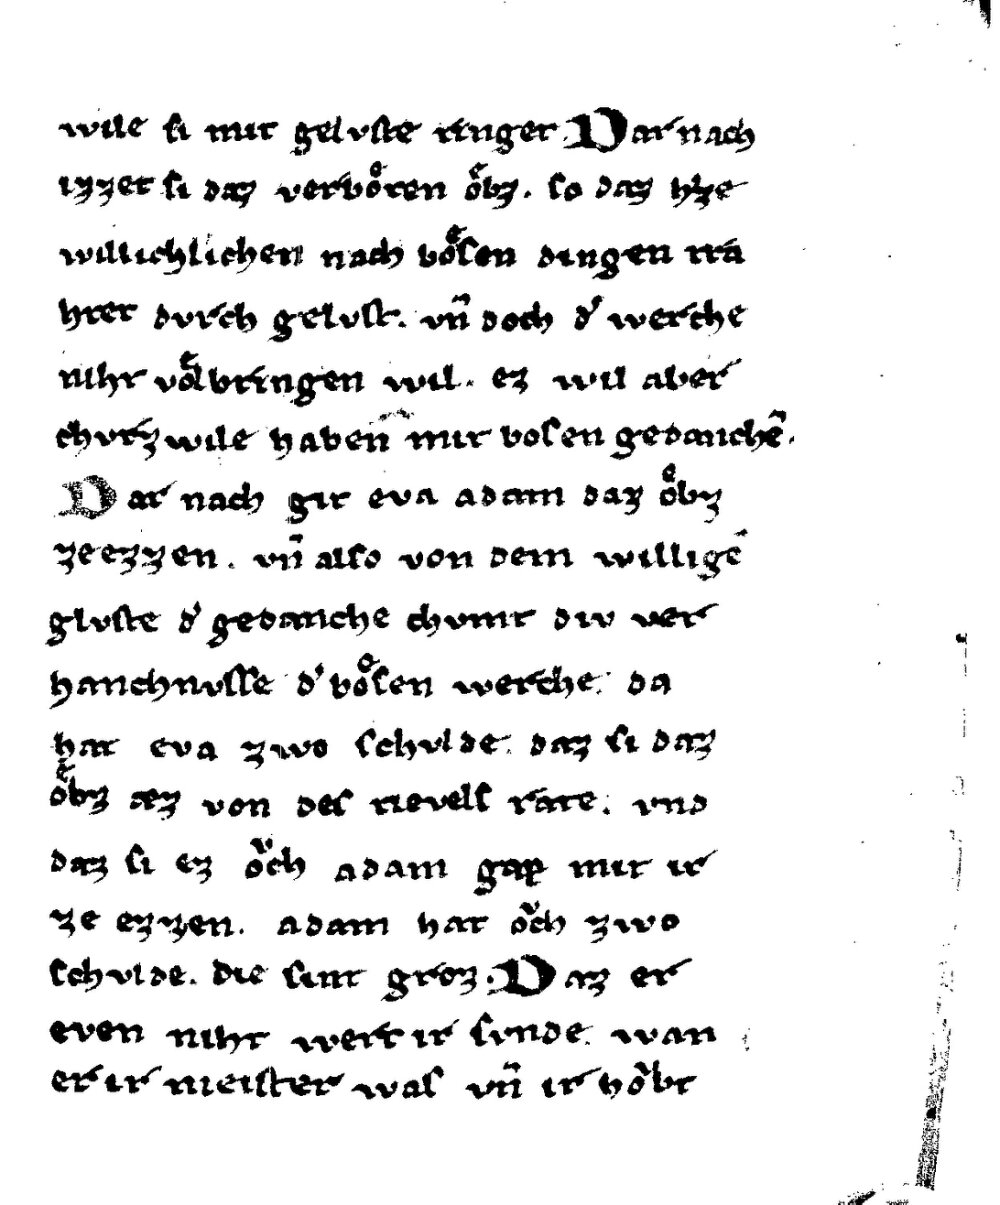 wile ſi mit gelvſte ringet. Dar nach
izzet ſi daz verboͤten oͤbz. ſo daz h'ze
willichlichen nach boͤſen dingen tra
htet dvrch gelvſt. vn̄ doch d' werche
niht voͤlbringen wil. ez wil aber
chvrzwile haben mit boſen gedanchē.
Dar nach git eva adam daz oͤbz
zeezzen. vn̄ alſo von dem willigē
glvſte d' gedanche chvmt div ver
hanchnvſſe d' boͤſen werche. da
hat eva zwo ſchvlde. daz ſi daz
oͤbz æz von des tievels rate. vnd
daz ſi ez oͮch adam gap mit ir
ze ezzen. adam hat oͮch zwo
ſchvlde. die ſint groz. Daz er
even niht wert ir ſvnde. wan
er ir meiſter was vn̄ ir hoͮbt